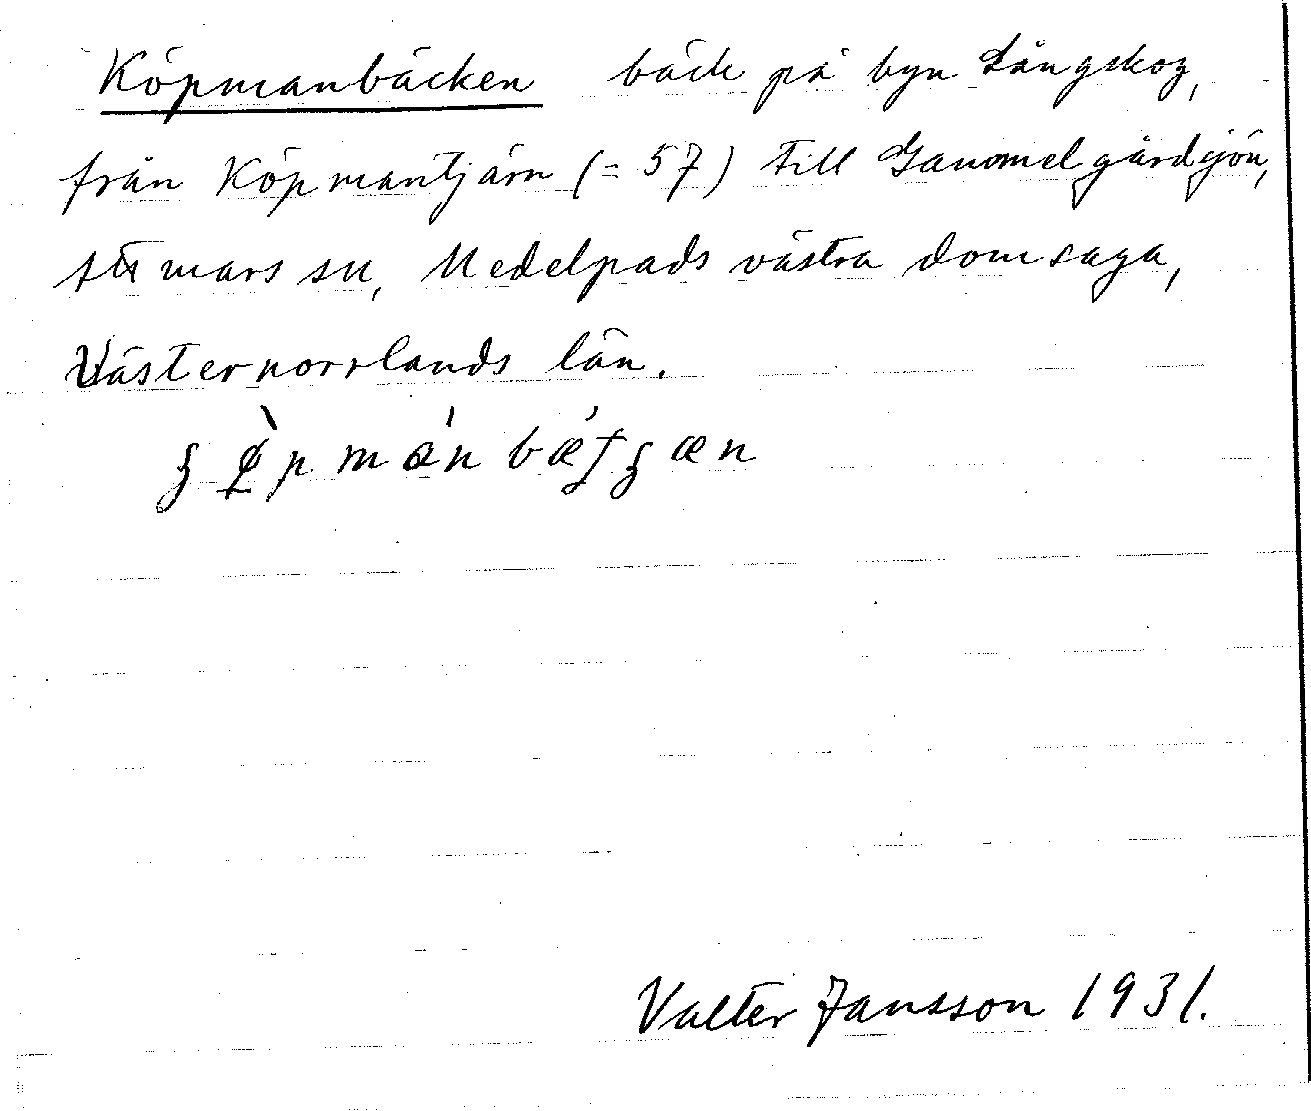 Köpmanbäcken bäck på byn Långskog,
från Köpmantjärn (=57) till Gammelgårdsjön,
Attmars sn, Medelpads västra domsaga,
Västernorrlands län.
Valter Jansson 1931.